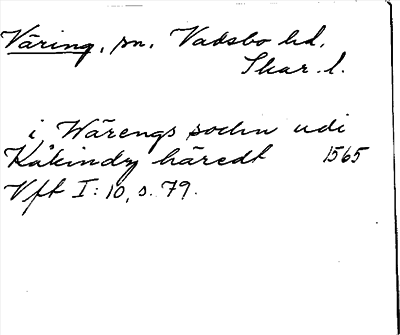 Väring, sn. Vadsbo hd.
Skar. l.
i Wärengs sochn udi
Kåkindz häredt 1565
Vft I: 10, s. 79.